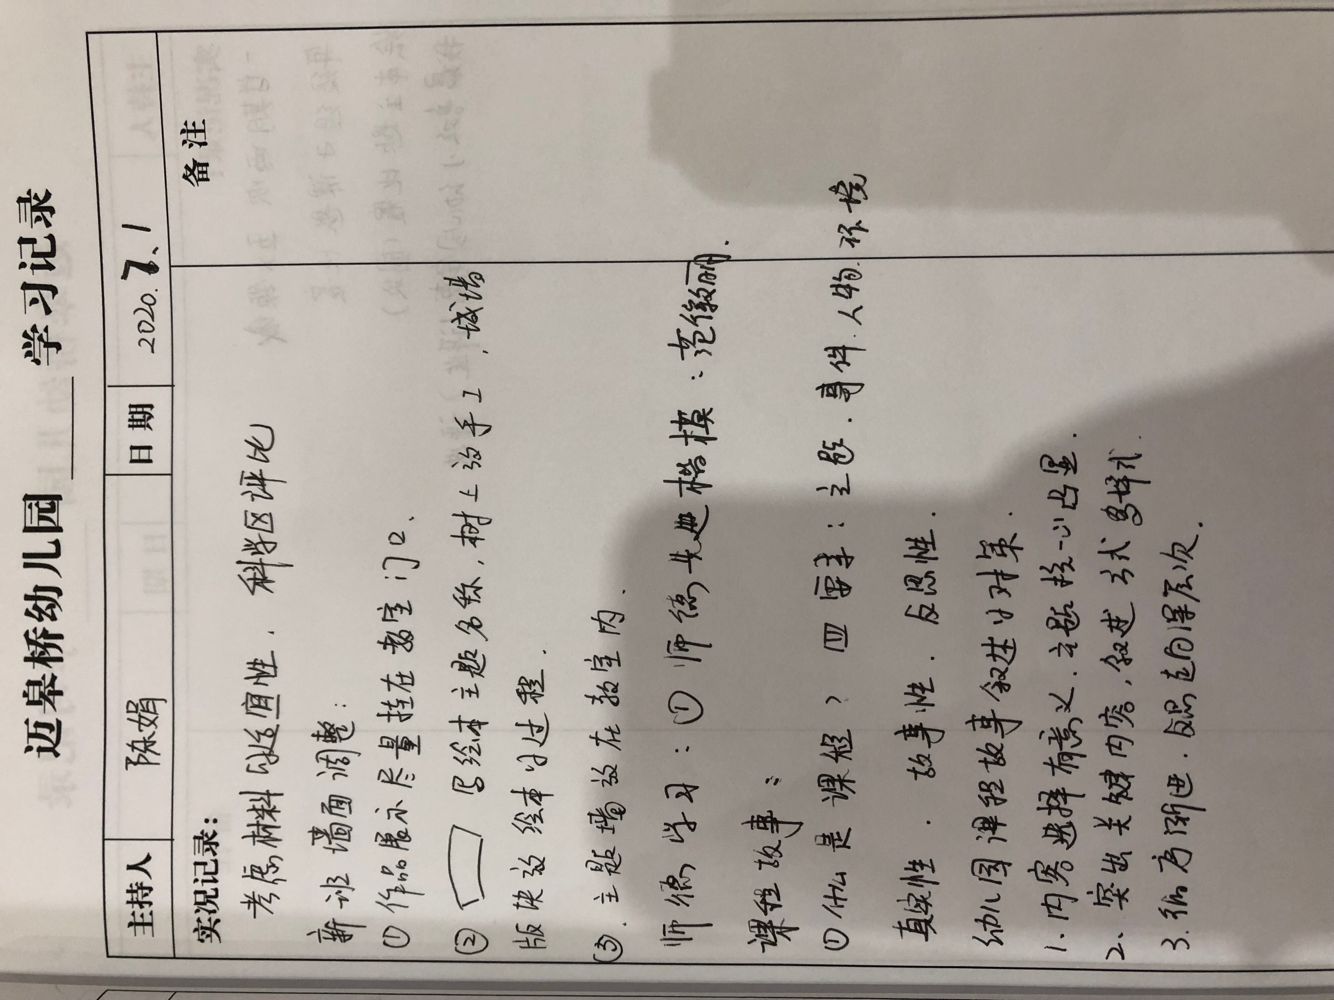 迈皋桥幼儿园 学习记录
主持人 陈娟 日期 2020.7、1
实况记录： 备注
考虑材料的适宜性. 科学区评比
新班墙面调整：
① 作品展示尽量挂在教室门口、
② 写绘本主题名称，树上放手工，城墙
版块放绘本的过程.
③. 主题墙放在教室内.
师德学习：① 师德先进楷模：范徽丽.
课程故事：
①什么是课程？ 四要素：主题．事件．人物．环境
真实性．故事性．反思性．
幼儿园课程故事叙述的对策．
1. 内容选择有意义．主题核心凸显．
2、突出关键内容，叙述方式多样式．
3. 循序渐进．反思走向深层次．